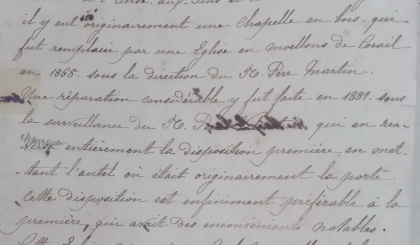 il y eut ici originairement une Chapelle en bois, qui
fut remplacée par une Eglise en moellons de Corail
en 1868. sous la direction du R. Pere Martin.
Une réparation considérable y fut faite en 1881. sous
la surveillance du R. P. qui en ren-
versa entièrement la disposition première en met-
tant l'autel où était originairement la porte
Cette disposition est infiniment préférable à la
première, qui avait des inconvénients notables.